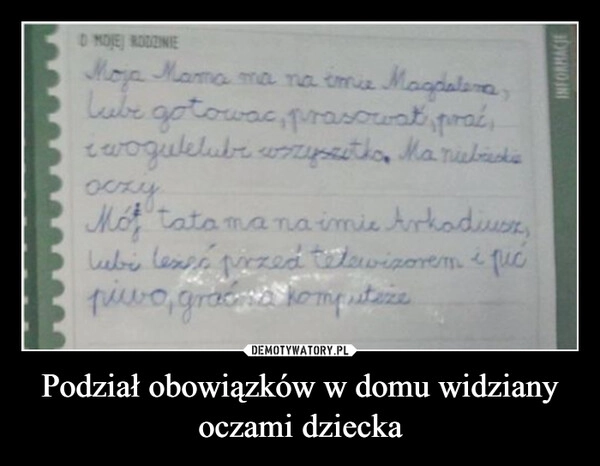 O MOJEJ RODZINIE
INFORMACJE
Moja Mama ma na imie Magdalena,
Lubi gotowac, prasować, prać,
i wogulelubi wszysztko. Ma niebieskie
oczy
Mój tata ma na imie Arkadiusz,
lubi leżeć przed telewizorem i pić
piwo, grać na komputeże
DEMOTYWATORY.PL
Podział obowiązków w domu widziany
oczami dziecka